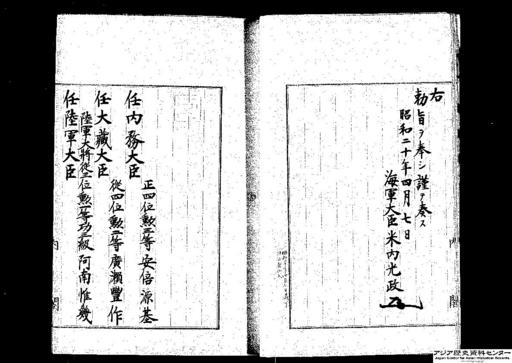 右
勅旨ヲ奉シ謹テ奏ス
昭和二十年四月七日
海軍大臣米内光政
内閣
任内務大臣
正四位勲二等安倍源基
任大藏大臣
從四位勲二等廣瀬豐作
任陸軍大臣
陸軍大將從二位勲一等功三級阿南惟幾
内閣
アジア歴史資料センター
Japan Center for Asian Historical Records